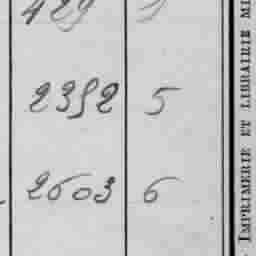 429
2352 5
2603 6
IMPRIMERIE ET LIBRAIRIE